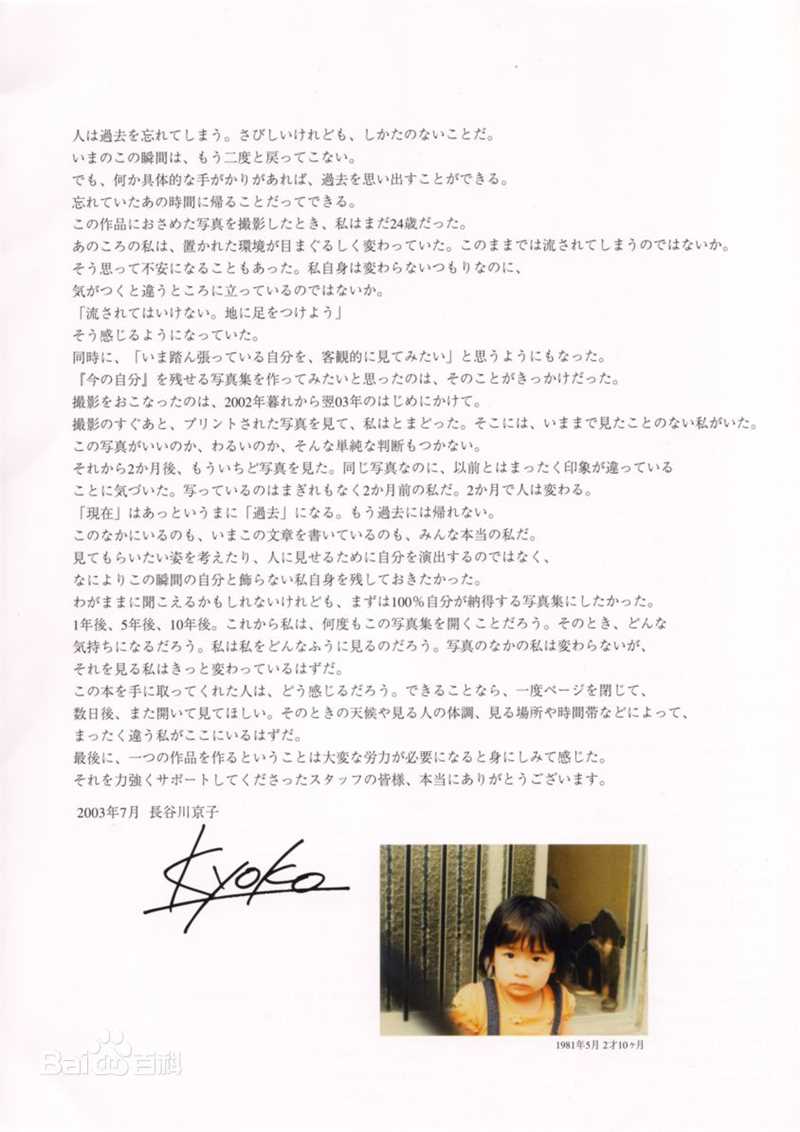 人は過去を忘れてしまう。さびしいけれども、しかたのないことだ。
いまのこの瞬間は、もう二度と戻ってこない。
でも、何か具体的な手がかりがあれば、過去を思い出すことができる。
忘れていたあの時間に帰ることだってできる。
この作品におさめた写真を撮影したとき、私はまだ24歳だった。
あのころの私は、置かれた環境が目まぐるしく変わっていた。このままでは流されてしまうのではないか。
そう思って不安になることもあった。私自身は変わらないつもりなのに、
気がつくと違うところに立っているのではないか。
「流されてはいけない。地に足をつけよう」
そう感じるようになっていた。
同時に、「いま踏ん張っている自分を、客観的に見てみたい」と思うようにもなった。
『今の自分』を残せる写真集を作ってみたいと思ったのは、そのことがきっかけだった。
撮影をおこなったのは、2002年暮れから翌03年のはじめにかけて。
撮影のすぐあと、プリントされた写真を見て、私はとまどった。そこには、いままで見たことのない私がいた。
この写真がいいのか、わるいのか、そんな単純な判断もつかない。
それから2か月後、もういちど写真を見た。同じ写真なのに、以前とはまったく印象が違っている
ことに気づいた。写っているのはまぎれもなく2か月前の私だ。2か月で人は変わる。
「現在」はあっというまに「過去」になる。もう過去には帰れない。
このなかにいるのも、いまこの文章を書いているのも、みんな本当の私だ。
見てもらいたい姿を考えたり、人に見せるために自分を演出するのではなく、
なによりこの瞬間の自分と飾らない私自身を残しておきたかった。
わがままに聞こえるかもしれないけれども、まずは100%自分が納得する写真集にしたかった。
1年後、5年後、10年後。これから私は、何度もこの写真集を開くことだろう。そのとき、どんな
気持ちになるだろう。私は私をどんなふうに見るのだろう。写真のなかの私は変わらないが、
それを見る私はきっと変わっているはずだ。
この本を手に取ってくれた人は、どう感じるだろう。できることなら、一度ページを閉じて、
数日後、また開いて見てほしい。そのときの天候や見る人の体調、見る場所や時間帯などによって、
まったく違う私がここにいるはずだ。
最後に、一つの作品を作るということは大変な労力が必要になると身にしみて感じた。
それを力強くサポートしてくださったスタッフの皆様、本当にありがとうございます。
2003年7月 長谷川京子
Kyoko
1981年5月 2才10ヶ月
Bai百科